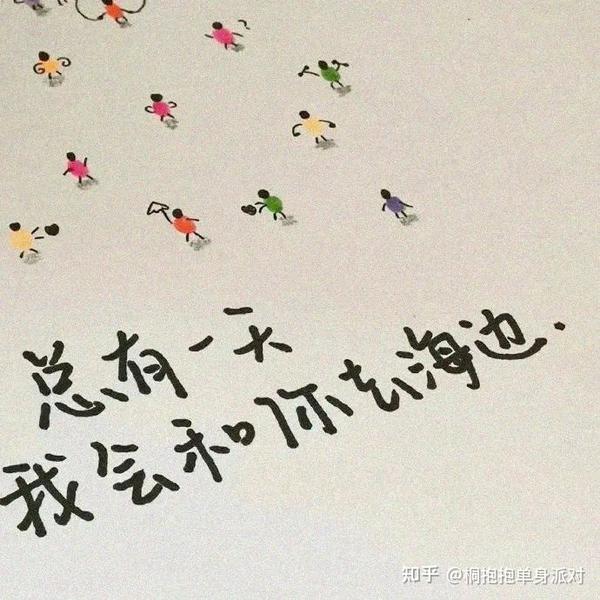 总有一天
我会和你去海边.
知乎 @桐抱抱单身派对